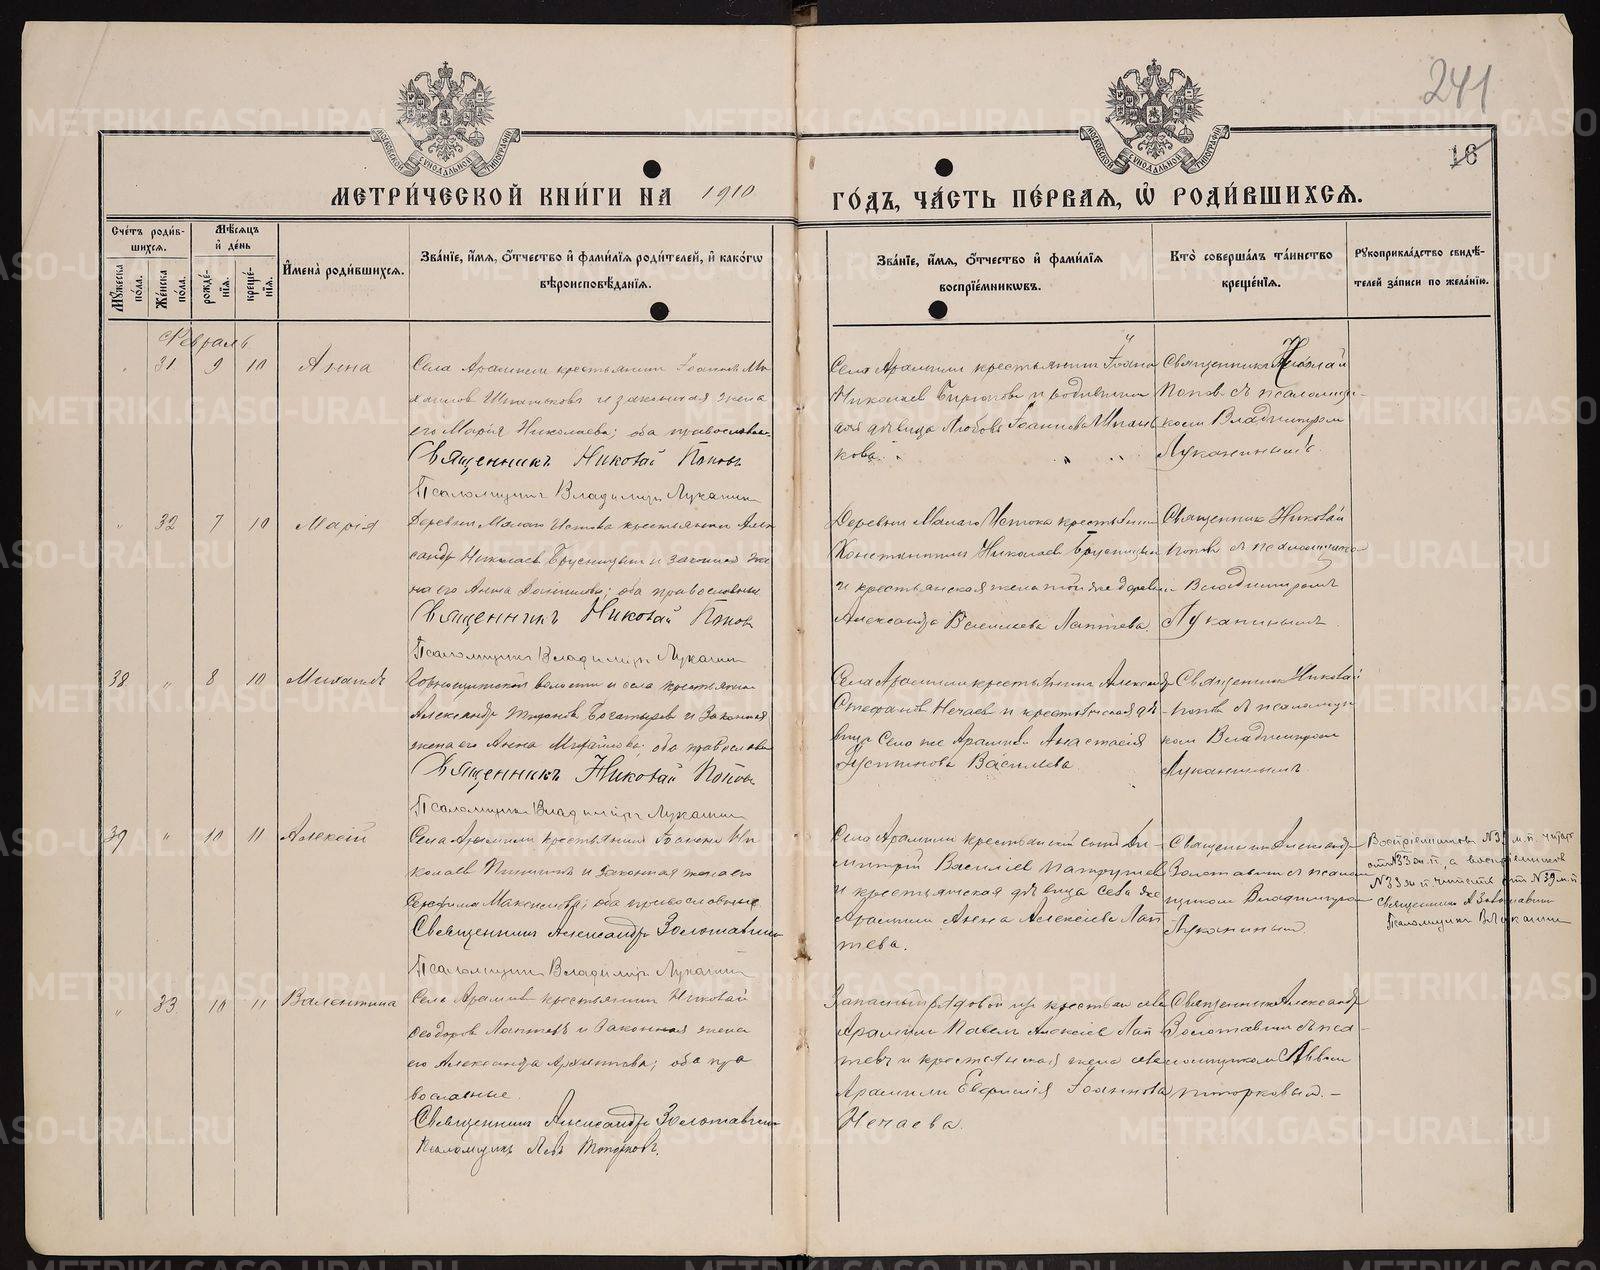 241
16
МЕТРИЧЕСКОЙ КНИГИ НА 1910 ГОДЪ, ЧАСТЬ ПЕРВАЯ, Ѡ РОДИВШИХСЯ.
Счетъ родившихся.
Мужеска пола.
Женска пола.
Мѣсяцъ и день
рожденія.
крещенія.
Имена родившихся.
Званіе, имя, отчество и фамилія родителей, и какогѡ
вѣроисповѣданія.
Званіе, имя, отчество и фамилія
воспріемникѡвъ.
Кто совершалъ таинство
крещенія.
Рукоприкладство свидѣ-
телей записи по желанію.
Февраль
31 9 10 Анна
Села Арамили крестьянинъ Іоаннъ Ми
хаиловъ и законная жена
его Марія Николаева; оба православн.
Священникъ Николай Поповъ
Псаломщикъ Владиміръ Луканинъ
Села Арамили крестьянинъ Іоанн
Николаевъ и
дѣвица Любовь Іоаннова
кова.
Священникъ Николай
Поповъ съ псаломщи-
комъ Владиміром
Луканинымъ.
32 7 10 Марія
Деревни Малаго Истока крестьянинъ Алек
сандръ Николаевъ Брусницынъ и законная же
на его Анна; оба православные
Священникъ Николай Попов
Псаломщикъ Владиміръ Луканин
Деревни Малаго Истока крестьянинъ
Константинъ Николаевъ Брусницын
и крестьянская жена той же деревни
Александра Васильева Лаптева.
Священник Николай
Поповъ съ псаломщико
Владиміромъ
Луканинымъ
38 8 10 Михаилъ
Горнощитской волости и села крестьянинъ
Александръ Богатыревъ и законная
жена его Анна Михайлова; оба православн
Священникъ Николай Поповъ
Псаломщикъ Владиміръ Луканин
Села Арамили крестьянинъ Александр
Стефановъ Нечаевъ и крестьянская дѣ
вица села же Арамили Анастасія
Іустинова Васильева.
Священник Николай
Поповъ съ псаломщи
комъ Владиміром
Луканинымъ
39 10 11 Алексій
Села Арамили крестьянинъ Іоаннъ Ни
колаевъ и законная жена его
Серафима Максимова; оба православные
Священникъ Александръ Золотавинъ
Псаломщикъ Владиміръ Луканин
Села Арамили крестьянскій сынъ Ди-
митрій Василіевъ Патрушев
и крестьянская дѣвица села же
Арамили Анна Алексіева Лап
тева.
Священникъ Александр
Золотавинъ съ псалом
щиком Владиміром
Луканиным.
Воспріемниковъ №39 м.п. читать
от №33 ж.п., а воспріемников
№33 ж.п. читать от №39 м.п
Священникъ А Золотавин
Псаломщикъ В Луканин
33 10 11 Валентина
Села Арамили крестьянинъ Николай
Ѳеодоров Лаптевъ и законная жена
его Александра Архипова; оба пра
вославные.
Священникъ Александръ Золотавинъ
Псаломщикъ Левъ Топорковъ.
Запасный рядовой изъ крестьян села
Арамили Павелъ Алексіевъ Лап
тевъ и крестьянская жена села
Арамили Евфимія Іоаннова
Нечаева.
Священникъ Александр
Золотавинъ съ пса-
ломщиком Львом
Топорковым.-
METRIKI.GASO-URAL.RU